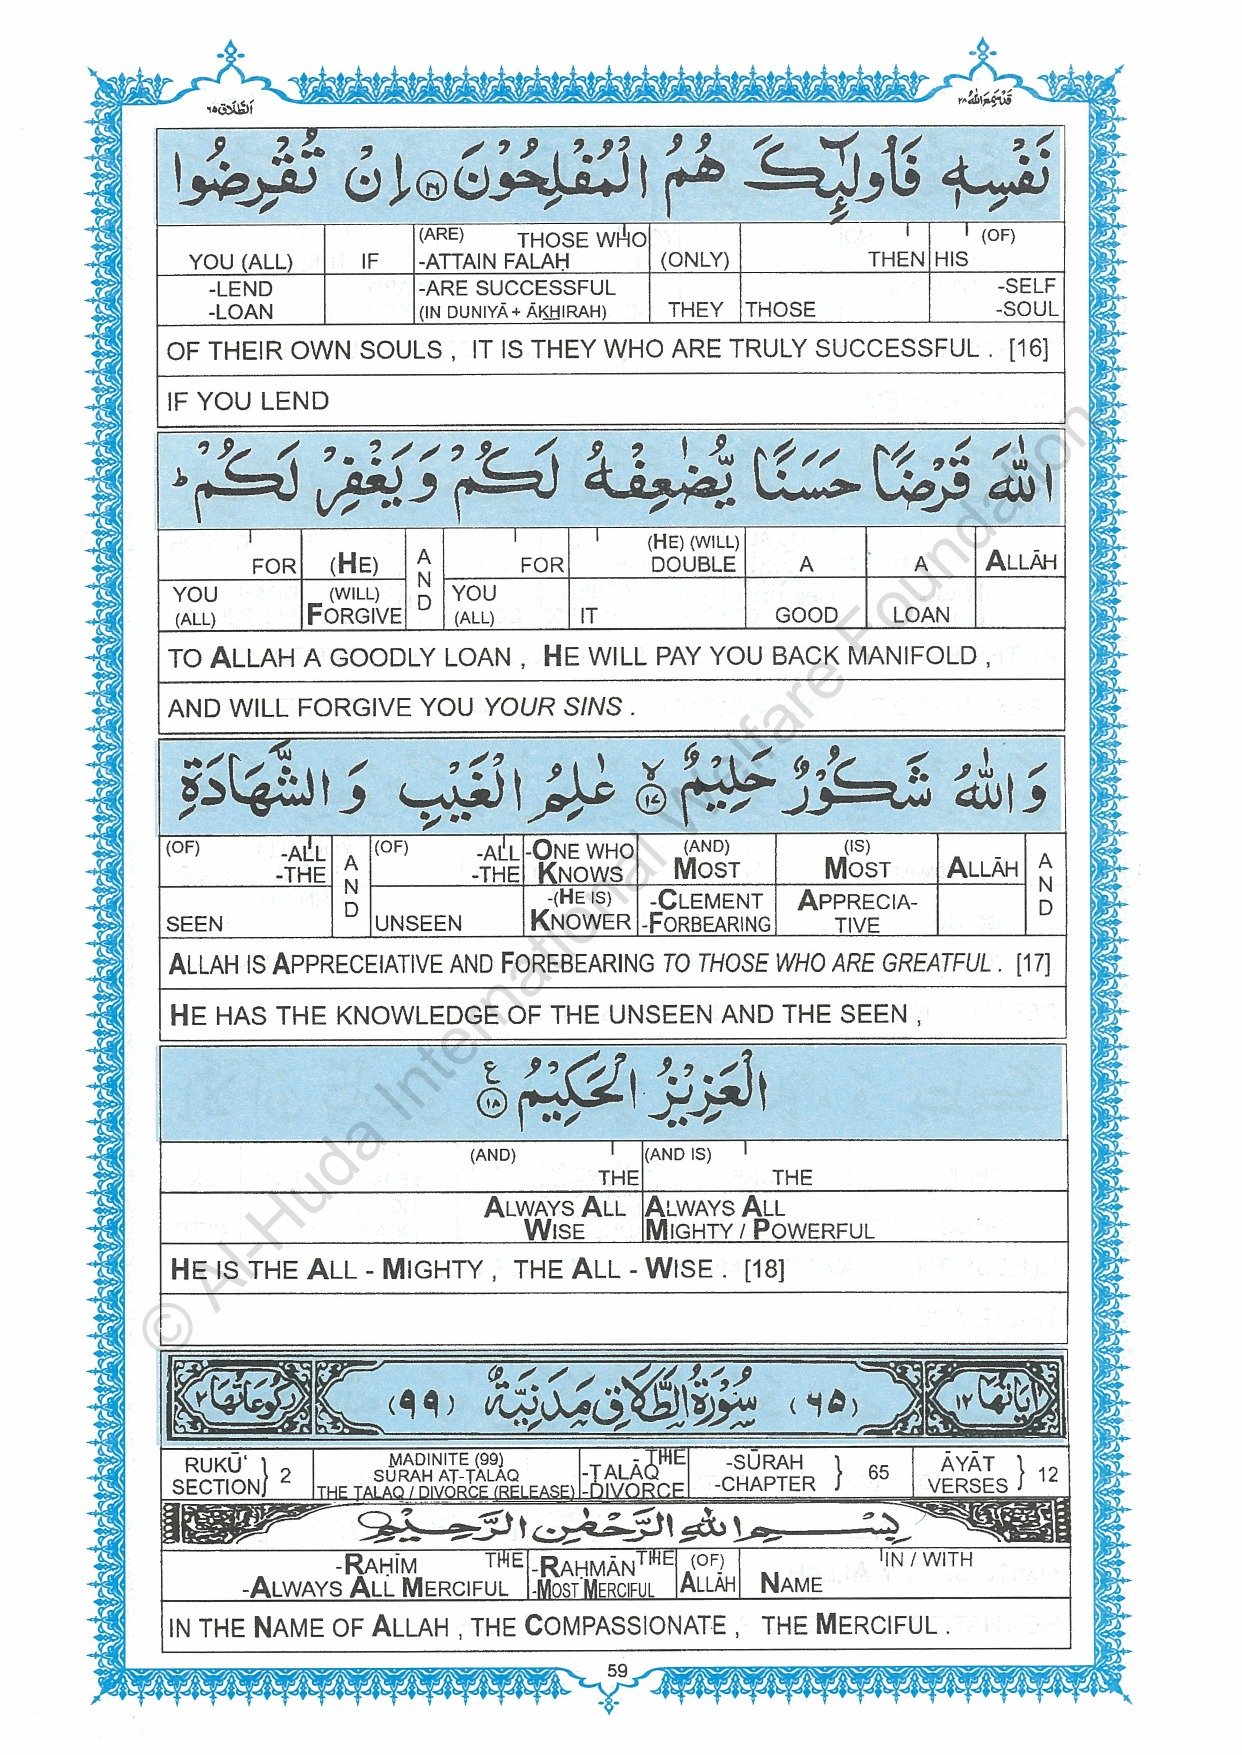 اَلطَّلَاق ٦٥
قَدْ سَمِعَ اللّٰهُ ٢٨
نَفْسِهٖ فَاُولٰٓئِكَ هُمُ الْمُفْلِحُوْنَ ⑯ اِنْ تُقْرِضُوا
YOU (ALL) IF (ARE) THOSE WHO -ATTAIN FALAḤ (ONLY) THEN HIS (OF)
-LEND -LOAN -ARE SUCCESSFUL (IN DUNIYĀ + ĀKHIRAH) THEY THOSE -SELF -SOUL
OF THEIR OWN SOULS , IT IS THEY WHO ARE TRULY SUCCESSFUL . [16]
IF YOU LEND
اللّٰهَ قَرْضًا حَسَنًا يُّضٰعِفْهُ لَكُمْ وَيَغْفِرْ لَكُمْ ؕ
FOR (HE) AND FOR (HE) (WILL) DOUBLE A A ALLĀH
YOU (ALL) (WILL) FORGIVE YOU (ALL) IT GOOD LOAN
TO ALLAH A GOODLY LOAN , HE WILL PAY YOU BACK MANIFOLD ,
AND WILL FORGIVE YOU YOUR SINS .
وَ اللّٰهُ شَكُوْرٌ حَلِيْمٌ ۙ ⑰ عٰلِمُ الْغَيْبِ وَ الشَّهَادَةِ
(OF) -ALL -THE AND (OF) -ALL -THE -ONE WHO KNOWS (AND) MOST (IS) MOST ALLĀH AND
SEEN UNSEEN -(HE IS) KNOWER -CLEMENT -FORBEARING APPRECIA- TIVE
ALLAH IS APPRECEIATIVE AND FOREBEARING TO THOSE WHO ARE GREATFUL . [17]
HE HAS THE KNOWLEDGE OF THE UNSEEN AND THE SEEN ,
الْعَزِيْزُ الْحَكِيْمُ ⑱ ع
(AND) THE (AND IS) THE
ALWAYS ALL WISE ALWAYS ALL MIGHTY / POWERFUL
HE IS THE ALL - MIGHTY , THE ALL - WISE . [18]
اٰيَاتُهَا ١٢ (٦٥) سُوْرَةُ الطَّلَاقِ مَدَنِيَّةٌ (٩٩) رُكُوْعَاتُهَا ٢
RUKŪ‘ SECTION } 2 MADINITE (99) SŪRAH AṬ-ṬALĀQ THE TALAQ / DIVORCE (RELEASE) THE -ṬALĀQ -DIVORCE -SŪRAH -CHAPTER } 65 ĀYĀT VERSES } 12
بِسْمِ اللّٰهِ الرَّحْمٰنِ الرَّحِيْمِ
-RAḤĪM THE -RAHMĀN THE (OF) IN / WITH
-ALWAYS ALL MERCIFUL -MOST MERCIFUL ALLĀH NAME
IN THE NAME OF ALLAH , THE COMPASSIONATE , THE MERCIFUL .
59
© Al-Huda International Welfare Foundation